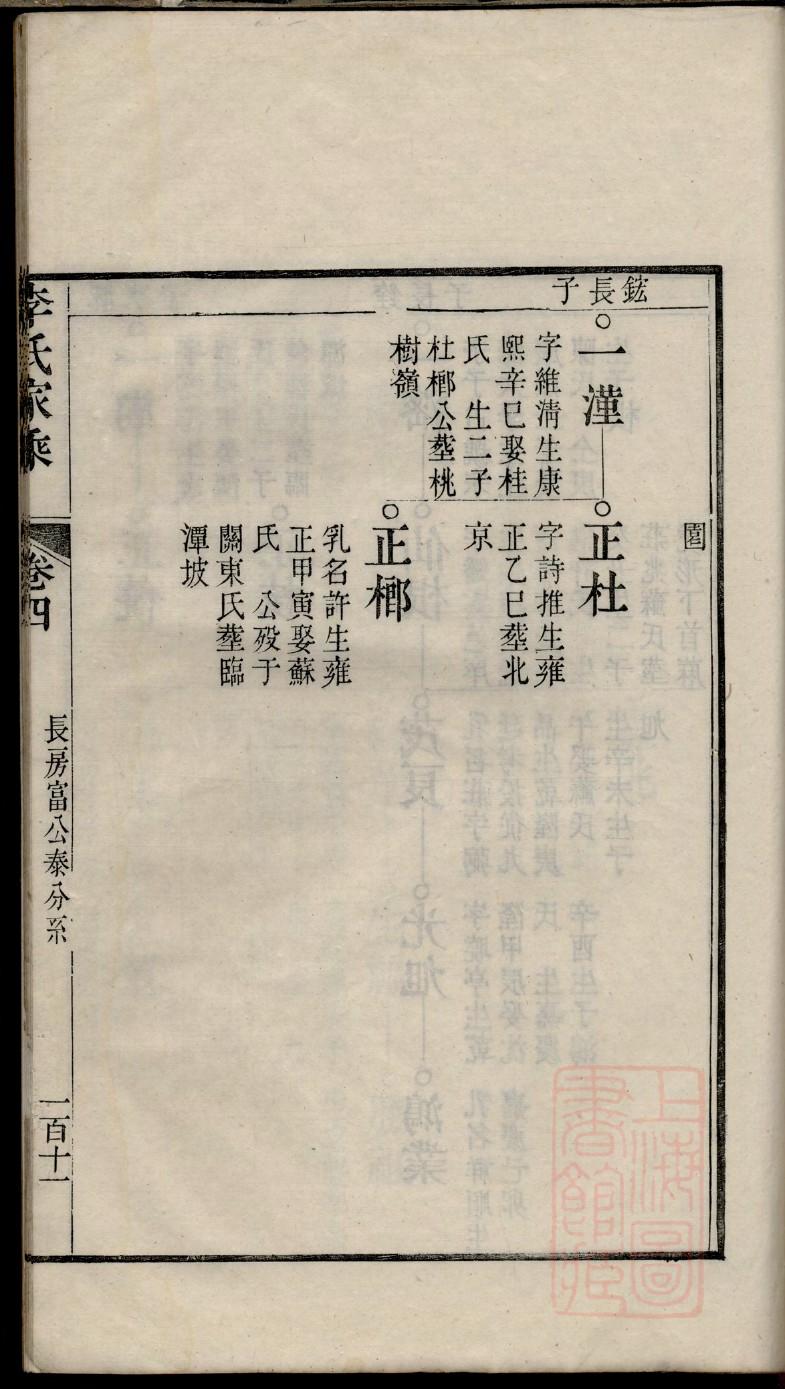 鋐長子
園
一𣿰
字維清生康
熙辛巳娶桂
氏　生二子
杜榔公塟桃
樹嶺
正杜
字詩推生雍
正乙巳塟北
京
正榔
乳名許生雍
正甲寅娶蘇
氏　公殁于
關東氏塟臨
潭坡
李氏家乘
卷四
長房富公泰分系
一百十一
上海圖書館藏